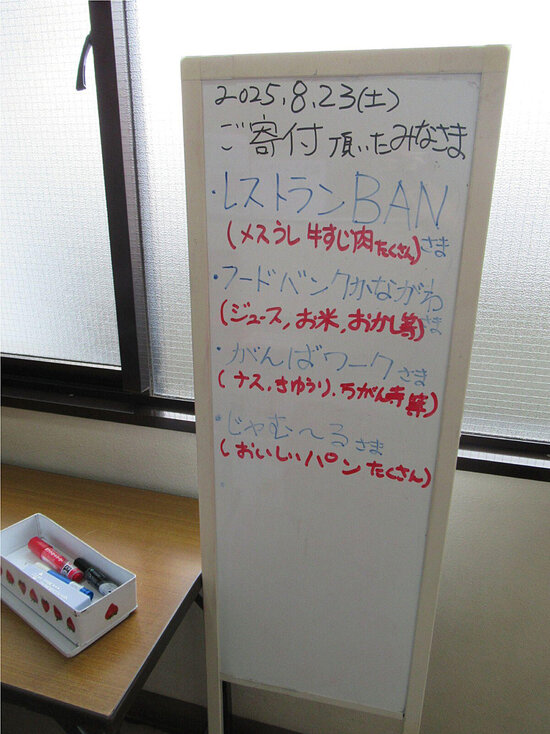 2025.8.23(土)
ご寄付頂いたみなさま
・レストランBAN
(メスうし牛すじ肉たくさん)さま
・フードバンクかながわ
(ジュース,お米,おかし等)さま
・がんばワークさま
(ナス,きゅうり,万がん寺等)
・じゃむ〜るさま
(おいしいパンたくさん)